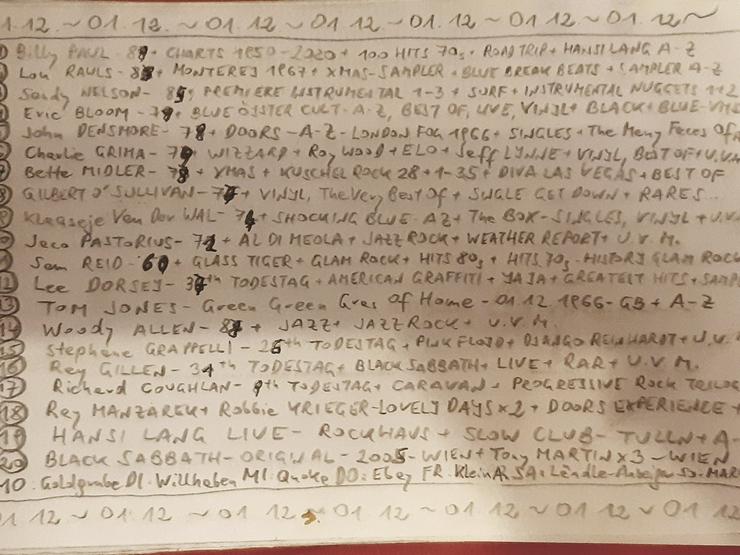 1.12. ~ 01.12. ~ 01.12 ~ 01.12 ~ 01.12 ~ 01.12 ~ 01.12 ~
Billy PAUL - 89 + CHARTS 1950-2020 + 100 HITS 70s + ROADTRIP + HANSI LANG A-Z
Lou RAWLS - + MONTEREJ 1967 + XMAS-SAMPLER + BLUE BREAK BEATS + SAMPLER A-Z
Sandy NELSON - PREMIERE INSTRUMENTAL 1-3 + SURF + INSTRUMENTAL NUGGETS 1+2
Eric BLOOM - + BLUE ÖSSTER CULT-A-Z, BEST OF, LIVE, VINYL + BLACK + BLUE-VHS
John DENSMORE - + DOORS-A-Z-LONDON FOG 1966 + SINGLES + The Many Faces Of
Charlie GRIMA - + WIZZARD + Roy WOOD + ELO + Jeff LYNNE + VINYL, BEST OF + U.V.M
7 Bette MIDLER - + XMAS + KUSCHELROCK 28 + 1-35 + DIVA LAS VEGAS + BEST OF
GILBERT O'SULLIVAN - + VINYL, The Very Best Of + SINGLE GET DOWN + RARES...
Klaasje Van Der WAL - + SHOCKING BLUE-AZ + The BOX-SINGLES, VINYL + U.V.
Jaco PASTORIUS - + AL DI MEOLA + JAZZROCK + WEATHER REPORT + U.V.M.
Sam REID - 60 + GLASS TIGER + GLAM ROCK + HITS 80s + HITS 70s - HISTORY GLAM ROCK
12 Lee DORSEY - TODESTAG + AMERICAN GRAFFITI + JAJA + GREATEST HITS + SAMPL
13 TOM JONES - Green Green Gras Of Home - 01.12.1966-GB + A-Z
14 Woody ALLEN - + JAZZ + JAZZROCK + U.V.M.
15 Stephane GRAPPELLI - th TODESTAG + PINK FLOYD + DJANGO REINHARDT + U.V.
16 Ray GILLEN - th TODESTAG + BLACK SABBATH + LIVE + RAR + U.V.M.
17 Richard COUGHLAN - 9th TODESTAG + CARAVAN + PROGRESSIVE ROCK TRILOG
18 Ray MANZAREK + Robbie KRIEGER - LOVELY DAYS x2 + DOORS EXPERIENCE +
19 HANSI LANG LIVE - ROCKHAUS + SLOW CLUB - TULLN + A-
20 BLACK SABBATH - ORIGINAL - 2005 - WIEN + Tony MARTIN x3 - WIEN
10. Goldgrube DI. Willhaben MI. Quoke DO: Ebay FR. Klein A. SA: Ländle-Anzeiger SO. MAR
01.12 ~ 01.12 ~ 01.12 ~ 01.12 ~ 01.12 ~ 01.12 ~ 01.12